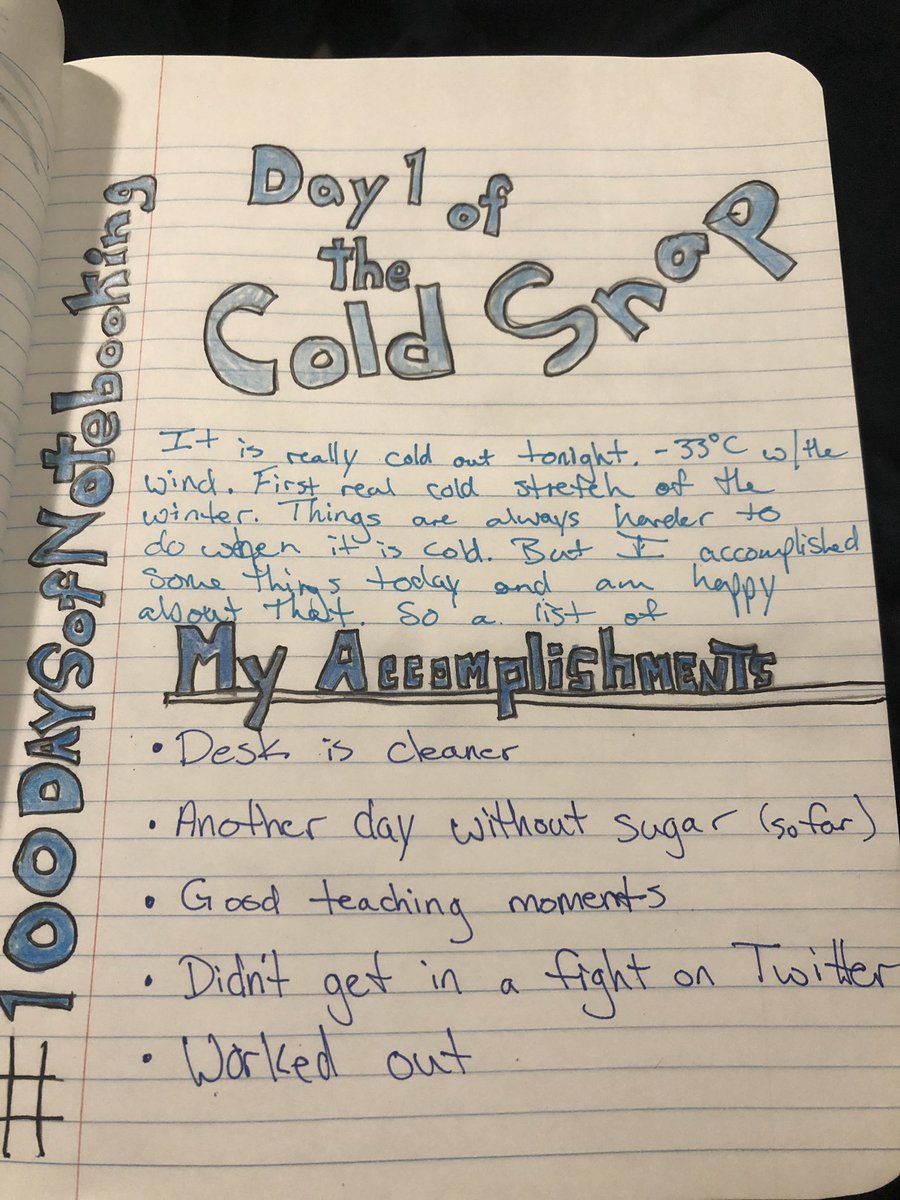 Day 1 of
the
Cold Snap
It is really cold out tonight. -33°C w/the
wind. First real cold stretch of the
winter. Things are always harder to
do when it is cold. But I accomplished
some things today and am happy
about that. So a list of
My Accomplishments
• Desk is cleaner
• Another day without sugar (so far)
• Good teaching moments
• Didn't get in a fight on Twitter
• Worked out
#100DAYSofNotebooking